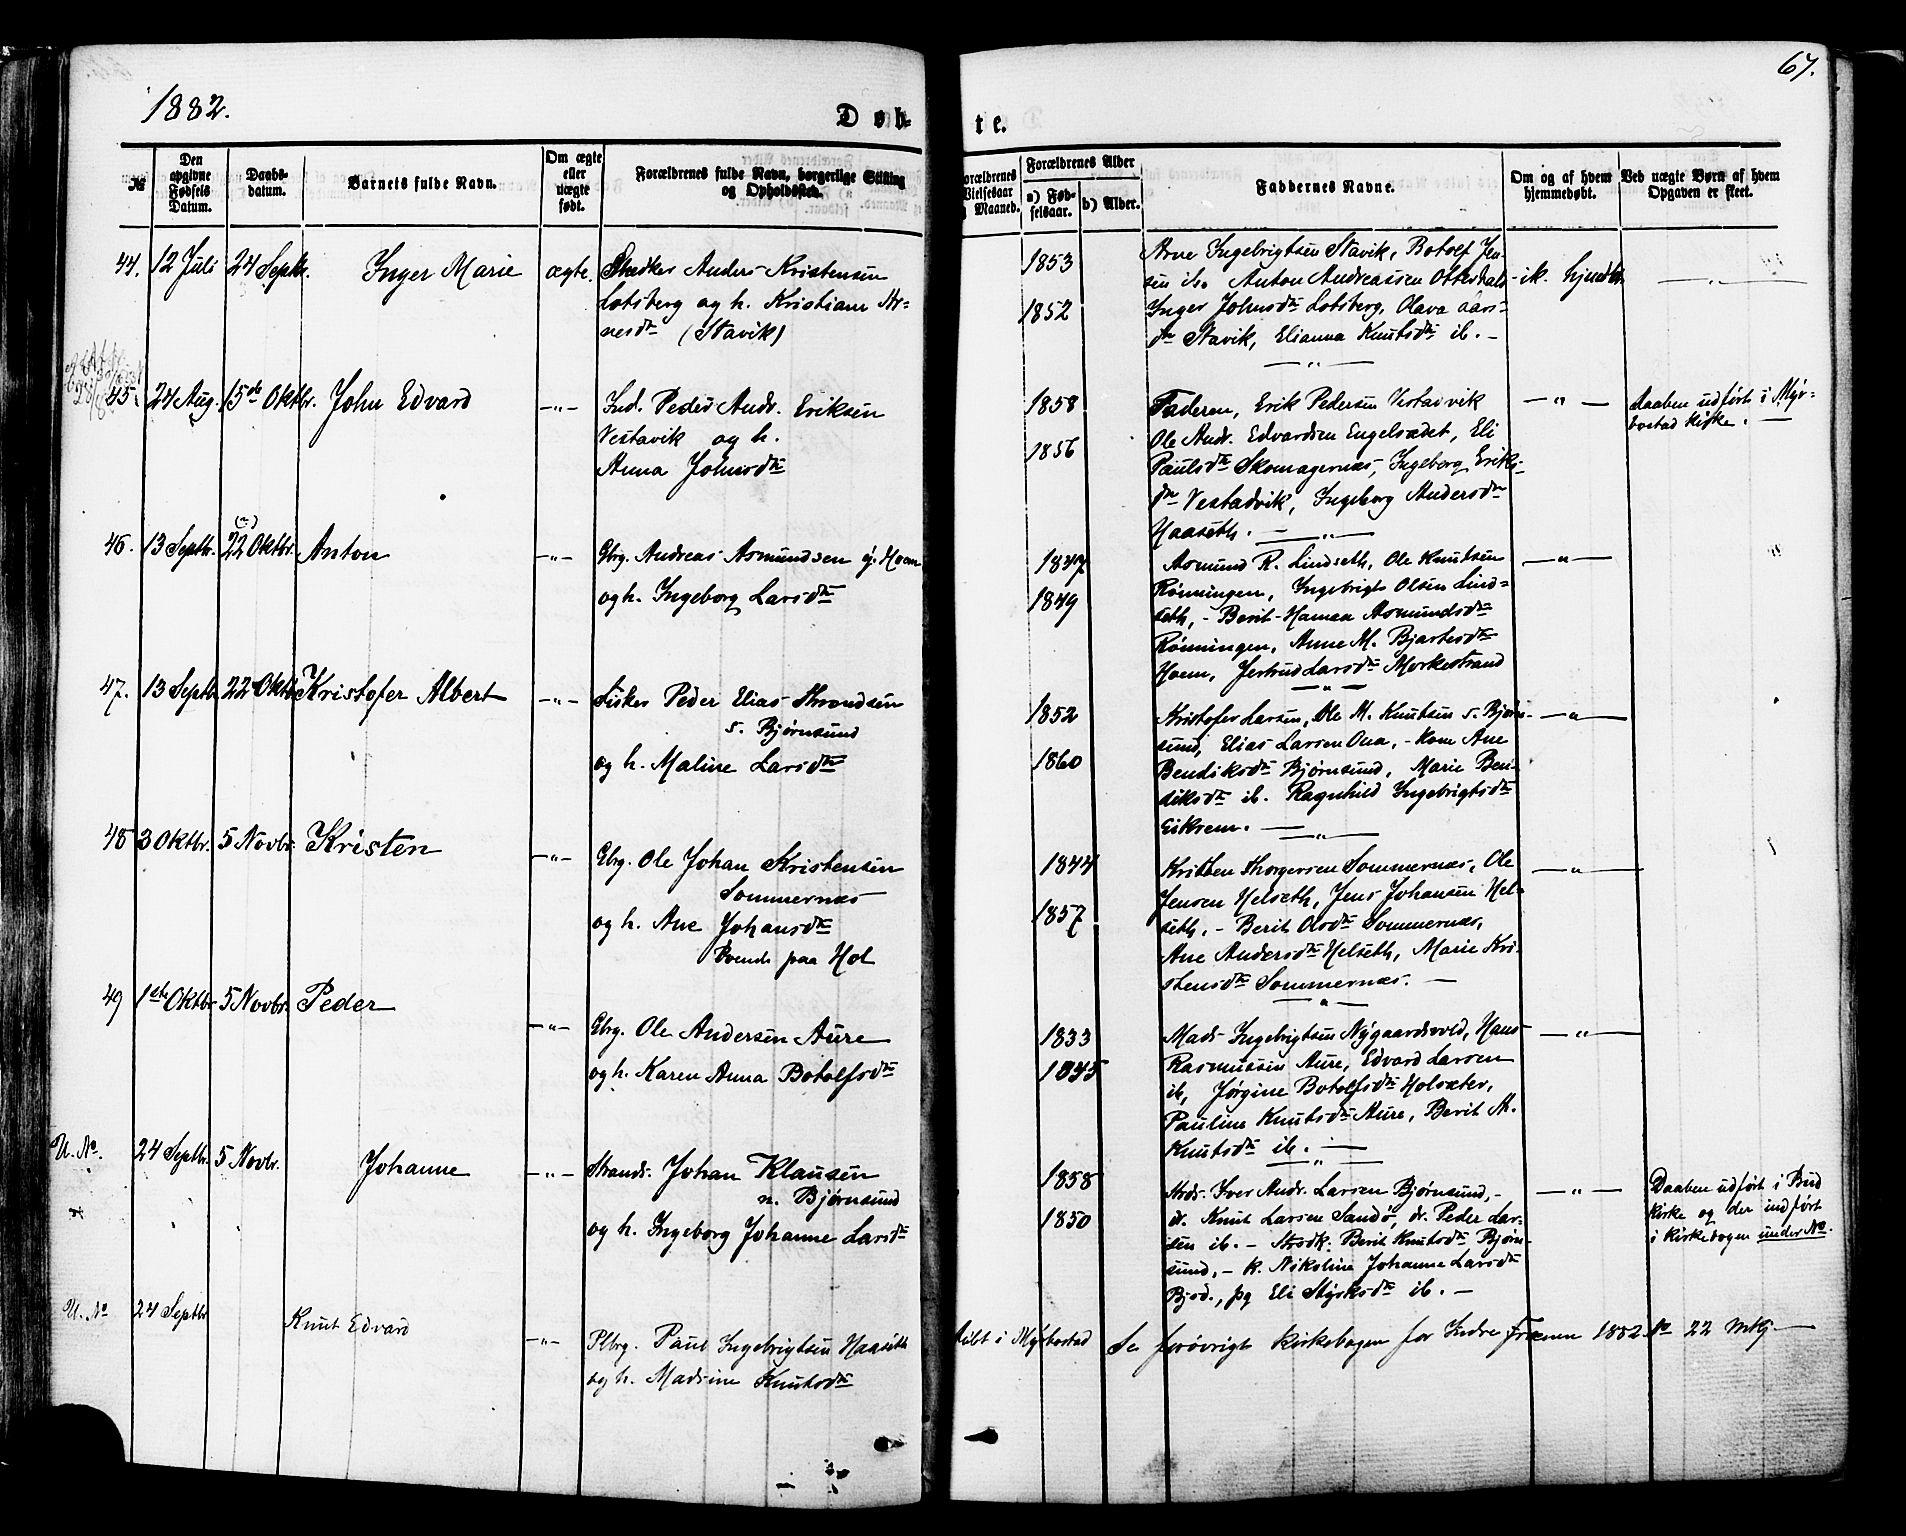 1882.
67.
Døb-
te.
№
Den opgivne Fødsels Datum.
Daabs-datum.
Barnets fulde Navn.
Om ægte eller uægte født.
Forældrenes fulde Navn, borgerlige Stilling og Opholdssted.
Forældrenes Vielsesaar og Maaned.
Forældrenes Alder
a) Fød-selsaar.
b) Alder.
Faddernes Navne.
Om og af hvem hjemmedøbt.
Ved uægte Børn af hvem Opgaven er skeet.
44. 12 Juli 24 Septbr. Inger Marie ægte.
Snedker Anders Kristensen
Lotsberg og h. Kristiane Ar-
nesdtr (Stavik)
1853
1852
Arne Ingebrigtsen Stavik, Botolf Jen-
sen ib. Anton Andreassen Otterdal-
Inger Johnsdtr Lotsberg, Olava Lars-
dtr Stavik, Elianna Knutsdtr ib. -
ik. hjmdbt.
45. 24 Aug. 15de Oktbr. John Edvard -"-
Ind. Peder Andr. Eriksen
Vestavik og h.
Anna Johnsdtr
1858
1856
Faderen, Erik Pedersen Vestavik
Ole Andr. Edvardsen Engelsædet, Eli
Paulsdtr Skomagernæs, Ingeborg Eriks-
dtr Vestadvik, Ingeborg Andersdtr
Haaseth. -
-"-
Daaben udført i Myr-
bostad Kirke. -
46. 13 Septbr. 22 Oktbr. Anton -"-
Gbrg. Andreas Asmundsen y. Hoem
og h. Ingeborg Larsdtr
1847
1849
Asmund R. Lindseth, Ole Knutsen
Rønningen, Ingebrigt Olsen Lind-
seth, - Berit Hansen Asmundsdtr
Rønningen, Anne M. Bjartesdtr
Hoem, Jertrud Larsdtr Morkestrand
-"-
47. 13 Septbr 22 Oktbr Kristofer Albert -"-
Fisker Peder Elias Strandsen
s. Bjørnsund
og h. Maline Larsdtr
1852
1860
Kristofer Larsen, Ole M. Knutsen s. Bjørn-
sund, Elias Larsen Ona, - Kone Ane
Bendiksdtr Bjørnsund, Marie Ben-
diksdtr ib. Ragnhild Ingebrigtsdtr
Eikrem. -
-"-
48 3 Oktbr. 5 Novbr. Kristen -"-
Gbrg. Ole Johan Kristensen
Sommernæs
og h. Ane Johansdtr
Boende paa Hol
1844
1857
Kristen Thorgersen Sommernæs, Ole
Jensen Helseth, Jens Johansen Hel-
seth, - Berit Olsdtr Sommernæs,
Ane Andersdtr Helseth, Marie Kri-
stensdtr Sommernæs. -
-"-
49 1ste Oktbr 5 Novbr. Peder -"-
Gbrg. Ole Andersen Aure
og h. Karen Anna Botolfsdtr
1833
1845
Mads Ingebrigtsen Nygaardsvold, Hans
Rasmussen Aure, Edvard Larsen
ib, Jørgine Botolfsdtr Holsæter,
Pauline Knutsdtr Aure, Berit M.
Knutsdtr ib. -
-"-
U. No. 24 Septbr. 5 Novbr. Johanne -"-
Strands. Johan Klausen
n. Bjørnsund
og h. Ingeborg Johanne Larsdtr
1858
1850
Strds. Iver Andr. Larsen Bjørnsund, -
do. Knut Larsen Sandø, do. Peder Lar-
sen ib. - Strdk. Berit Knutsdtr Bjørn-
sund, - K. Nikoline Johanne Larsdtr
Bjsd., pg Eli Styrksdtr ib. -
-"-
Daaben udført i Bud
Kirke og der indført
i Kirkebogen under No.
U. No 24 Septbr Knut Edvard -"-
Plbrg. Paul Ingebrigtsen Haaseth
og h. Madsine Knutsdtr
døbt i Myrbostad Se forøvrigt Kirkebogen for Indre Frænen 1882. No 22 Mk. -